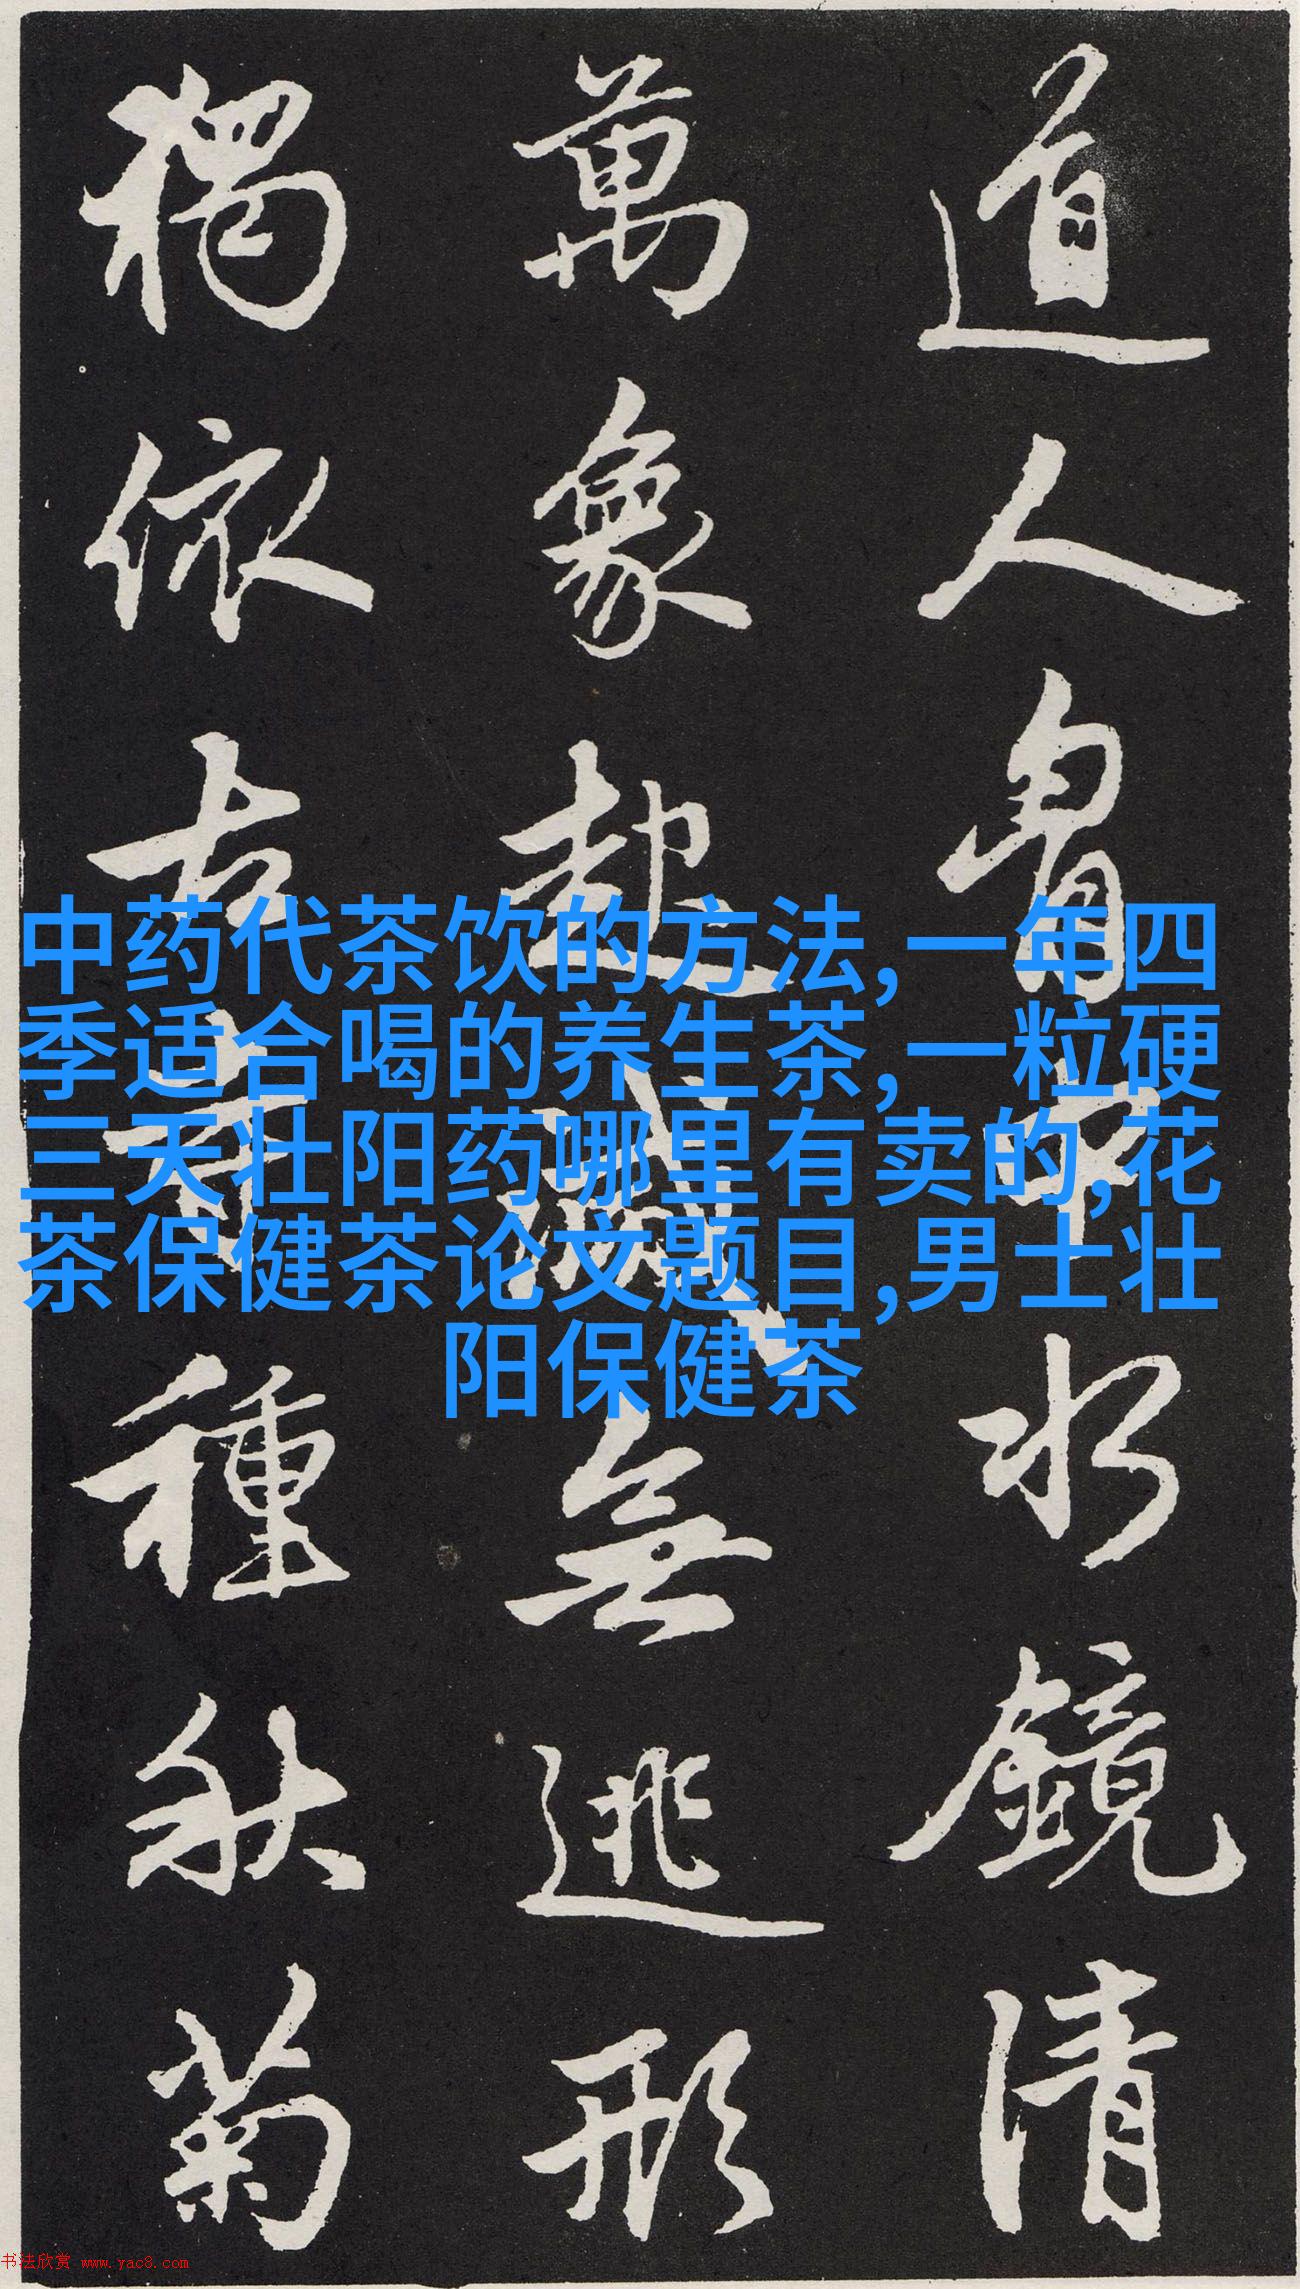 道人胷中水鏡清
萬象起滅無逃形
獨依古寺種秋菊
中药代茶饮的方法,一年四
季适合喝的养生茶,一粒硬
三天壮阳药哪里有卖的,花
茶保健茶论文题目,男士壮
阳保健茶
书法欣赏 www.yac8.com